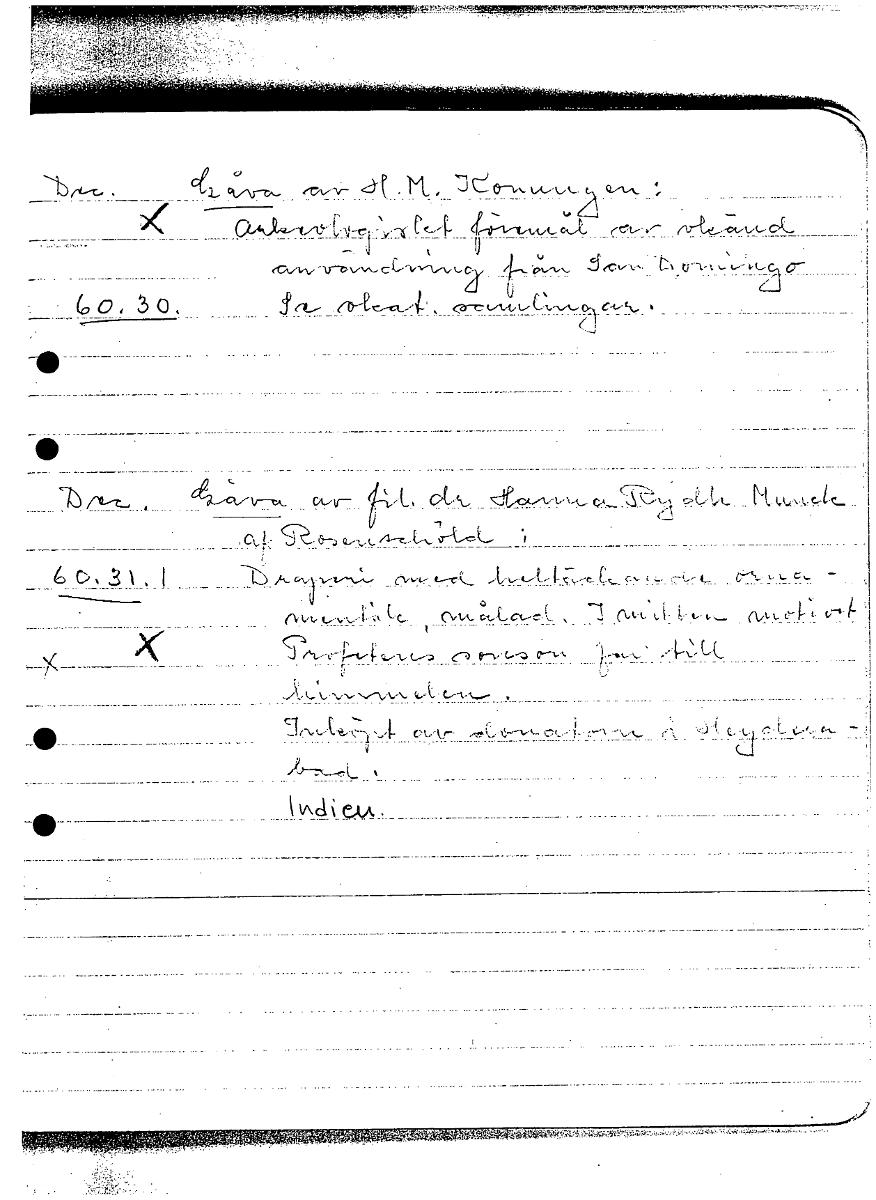 Dec. Gåva av H.M. Konungen:
X Arkeologiskt föremål av okänd
användning från San Domingo
60.30. Se okat. samlingar.
Dec. Gåva av fil. dr Hanna Rydh Munck
af Rosenschöld:
60.31.1 Draperi med heltäckande orna-
mentik, målad. I mitten motivet
X X Profetens
himmelen.
Inköpt av donatorn i Heydera-
bad.
Indien.